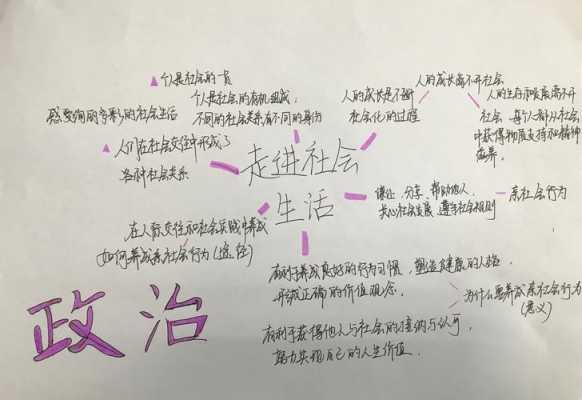 个人是社会的一员
感受绚丽多彩的社会生活
人们在社会交往中形成了
各种社会关系
个人是社会的有机组成,
不同的社会关系有不同的身份
人的成长是不断
社会化的过程
人的成长离不开社会
人的生存和发展离不开
社会,每个人都从社会
中获得物质支持和精神
滋养.
走进社会
生活
谦让、分享、帮助他人,
关心社会发展,遵守社会规则
亲社会行为
在人际交往和社会实践中养成
如何养成亲社会行为(途径)
有利于养成良好的行为习惯,塑造健康的人格,
形成正确的价值观念.
有利于获得他人与社会的接纳与认可,
努力实现自己的人生价值.
为什么要养成亲社会行为
(意义)
政治